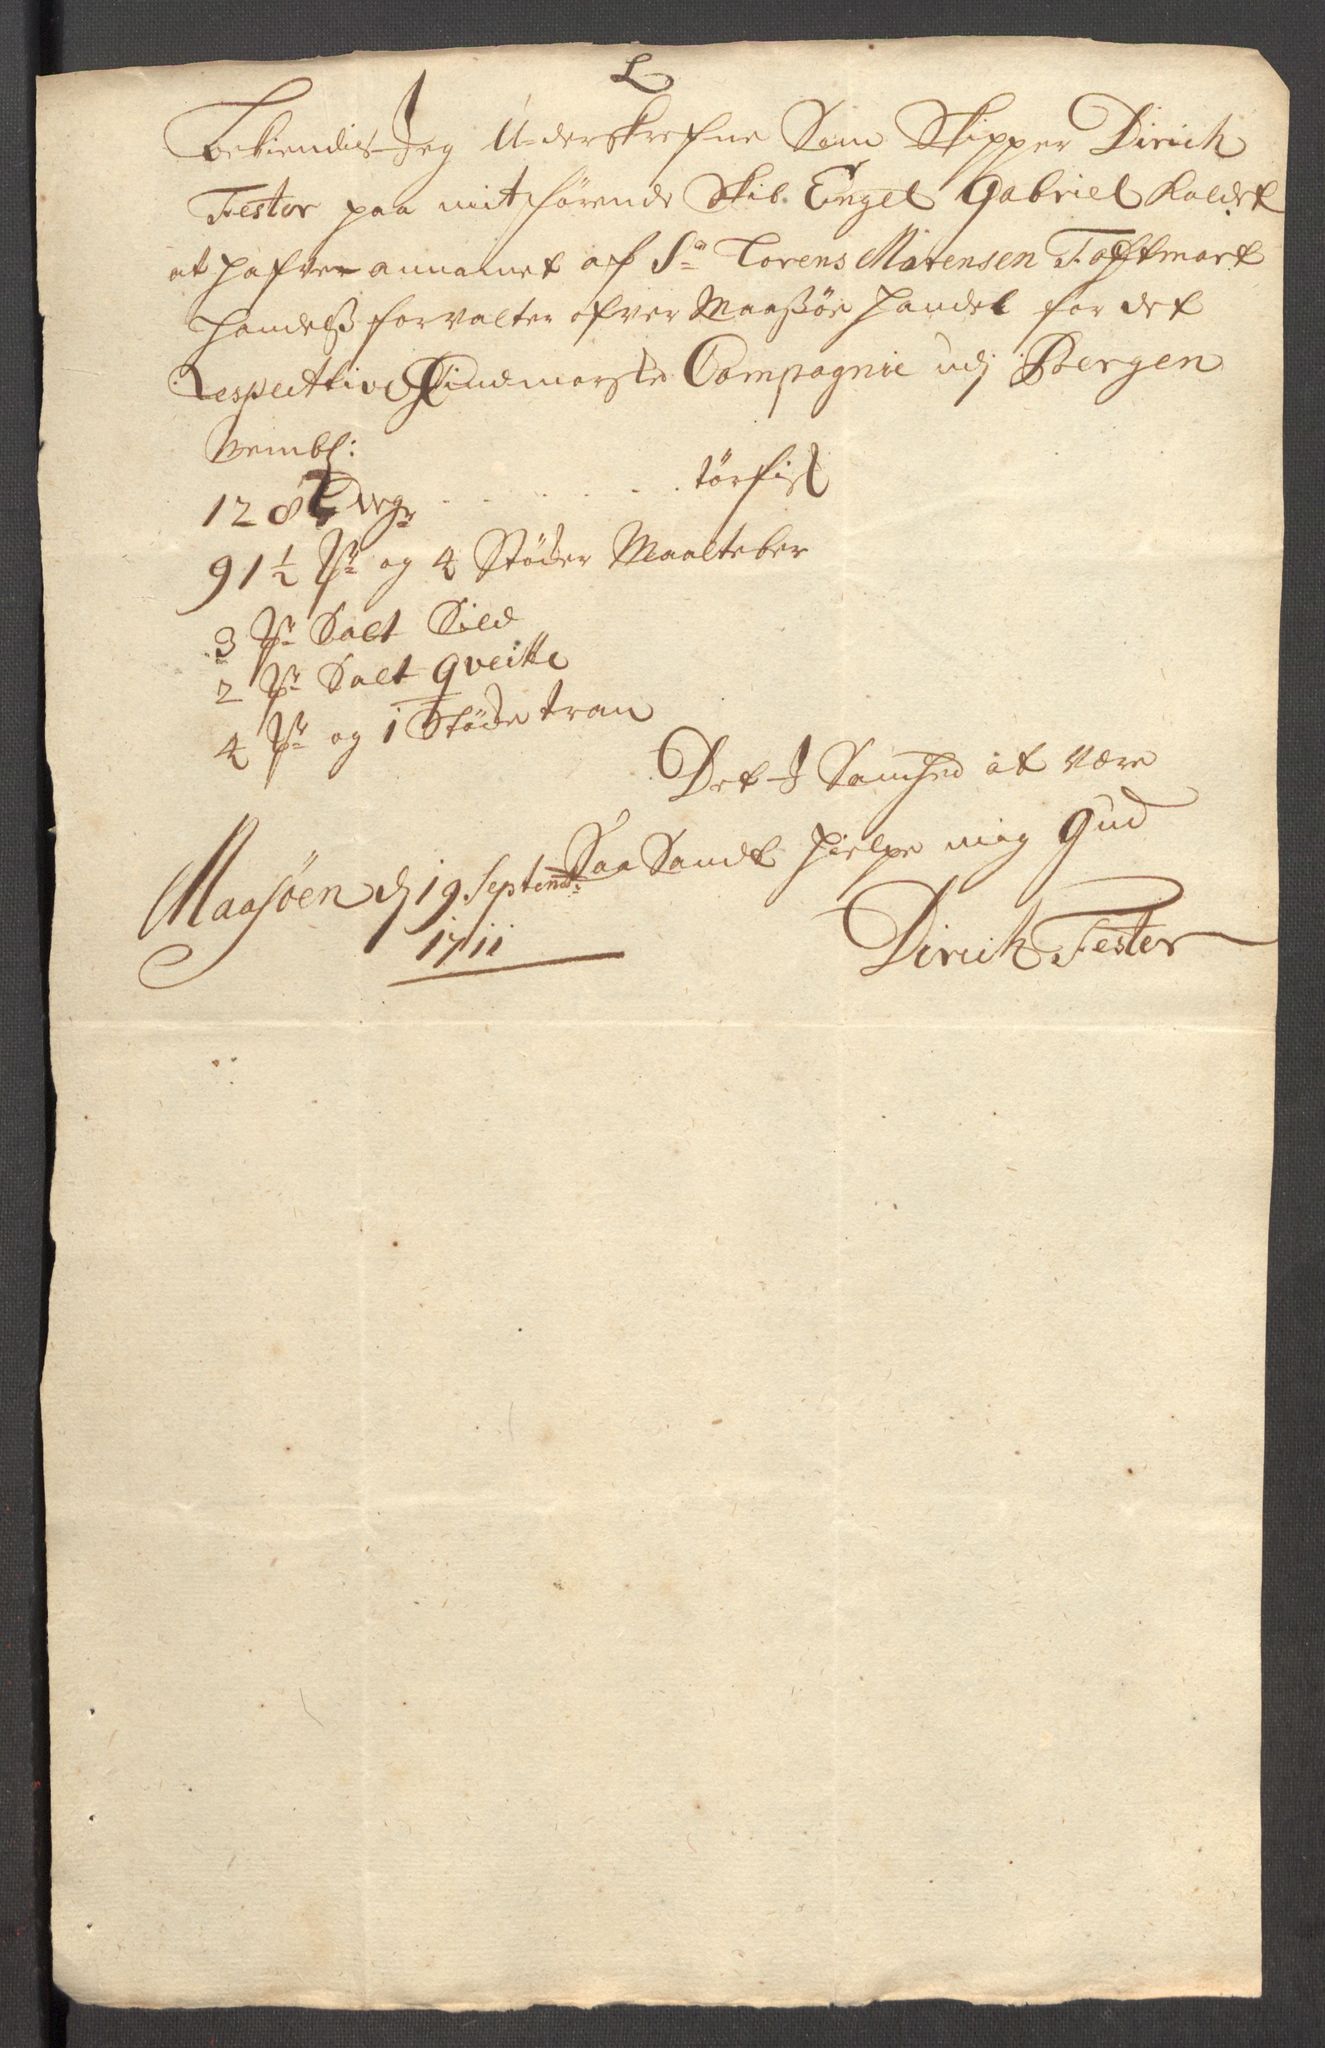 L
Bekiendis Jeg Underskrefne Som Skipper Dirich
Fester paa mit førende Skib. Engel Gabriel Kaldet
at hafver annamet af Sr Lorens Mörensen Tofftmark
Handelß forvalter ofver Maaßöe Handel for det
Respective Findmarske Compagnie udj Bergen
Nembl:
128 wgr . . . . . . tørfisk
91½ Tr og 4 Støder Maalteber
3 Tr Salt Sild
2 Tr Salt Qveitte
4 Tr og 1 Støde tran
Det J Sanhed at være
Saa Sandt hielpe mig Gud
Maasöen dj 19 Septembr:
1711
Dirich Fester